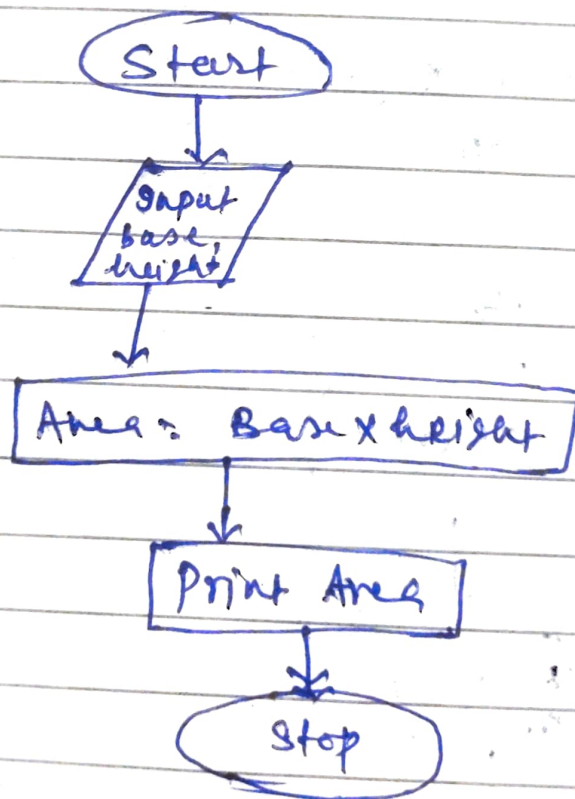 Start
Input
base,
height
Area = Base × height
Print Area
Stop